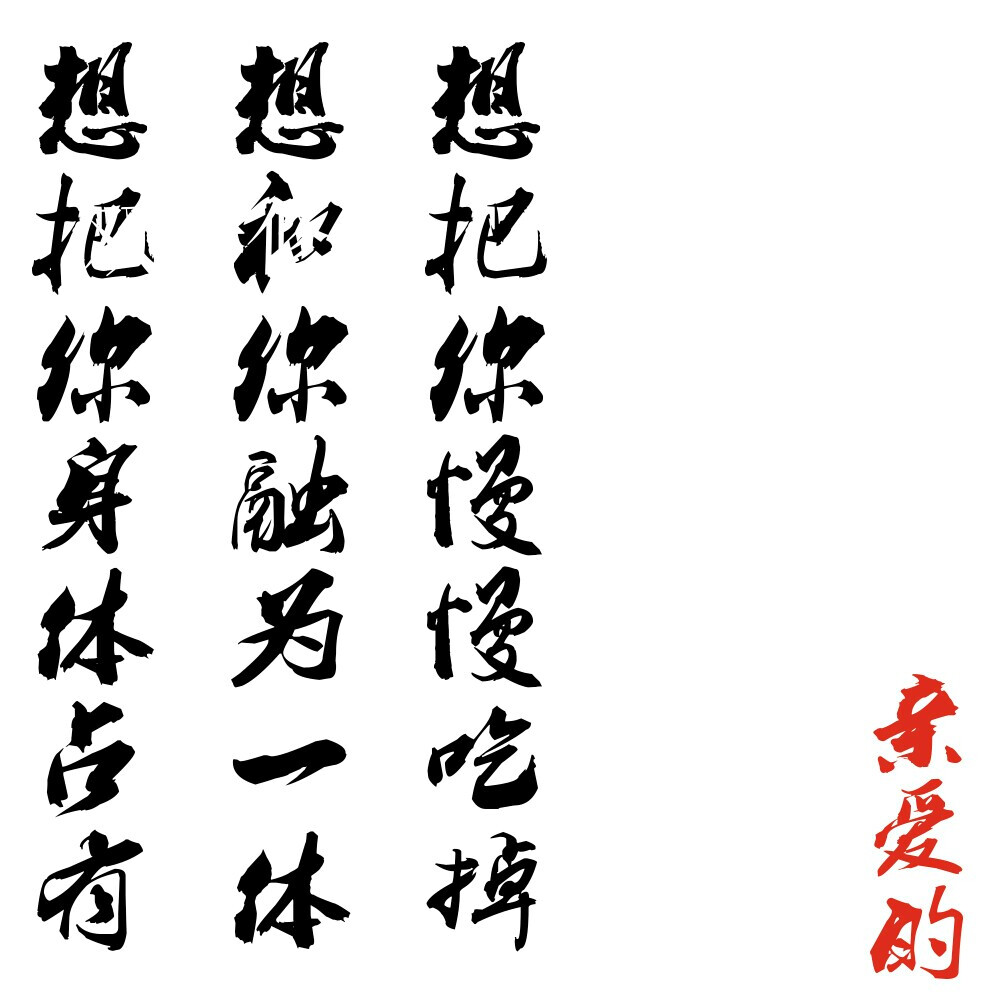 亲爱的
想把你慢慢吃掉
想和你融为一体
想把你身体占有